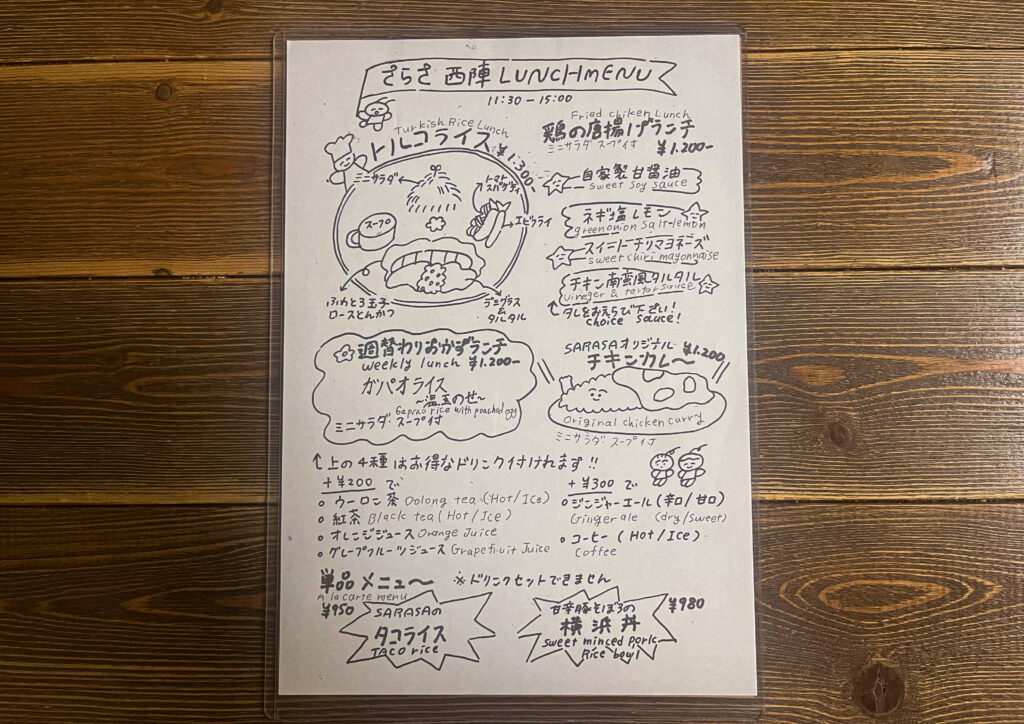 さらさ 西陣 LUNCHMENU
11:30-15:00
Turkish Rice Lunch
トルコライス
¥1.300-
ミニサラダ
トマト
スパゲティ
スープ
エビフライ
ふわとろ玉子
ロースとんかつ
デミグラス
&
タルタル
Fried chiken Lunch
鶏の唐揚げランチ
ミニサラダ スープ付
¥1.200-
自家製甘醤油
sweet soy sauce
ネギ塩レモン
greenonion salt-lemon
スイートチリマヨネーズ
sweet chiri mayonnaise
チキン南蛮風タルタル
vineger & tartar sauce
タレをおえらび下さい!
choice sauce!
週替わりおかずランチ
weekly lunch ¥1.200-
ガパオライス
~温玉のせ~
Gaprao rice with poached egg
ミニサラダ・スープ付
SARASAオリジナル
チキンカレ〜
¥1.200
Original chicken curry
ミニサラダ スープ付
上の4種はお得なドリンク付けれます!!
+¥200で
ウーロン茶 Oolong tea (Hot/Ice)
紅茶 Black tea (Hot/Ice)
オレンジジュース Orange Juice
グレープフルーツジュース Grapefruit Juice
+¥300で
ジンジャーエール(辛口/甘口)
Ginger ale (dry/sweet)
コーヒー (Hot/Ice)
Coffee
単品メニュ〜 ※ドリンクセットできません
A la carte menu
¥950
SARASAの
タコライス
TACO rice
甘辛豚そぼろの
横浜丼
¥980
sweet minced pork
Rice bowl